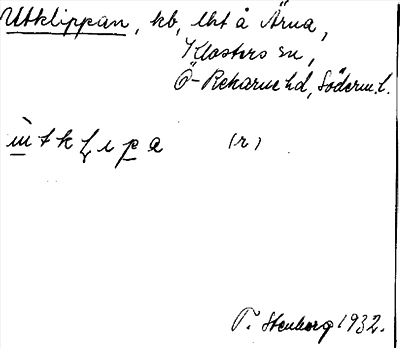 Utklippan, kb, lht å Ärna,
Klosters sn,
Ö-Rekarne hd, Söderm. l.
(r)
T. Stenborg 1932.